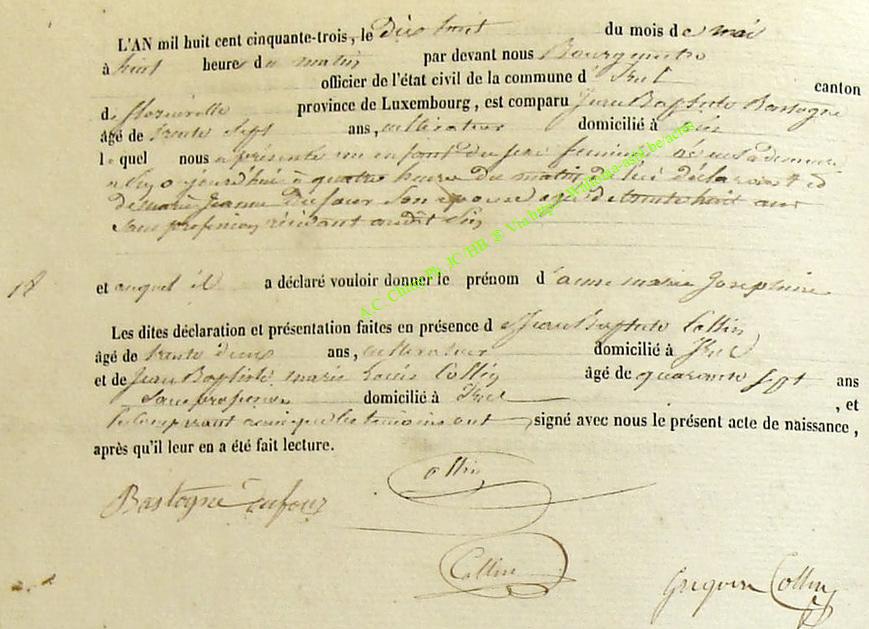 L'AN mil huit cent cinquante-trois, le Dix huit du mois de mai
à huit heures du matin par devant nous Bourgmestre
officier de l'état civil de la commune d' Izel canton
de florenville province de Luxembourg, est comparu Jean Baptiste Bastogne
âgé de trente sept ans, cultivateur domicilié à
lequel nous a présenté un enfant du sexe féminin né
aujourd'hui à quatre heures du matin de lui déclarant et
de marie Jeanne Dufour son épouse agée de trente huit ans
sans profession, résidant audit
18 et auquel il a déclaré vouloir donner le prénom d'anne marie Josephine
Les dites déclaration et présentation faites en présence de Jean Baptiste Collin
âgé de trente deux ans, cultivateur domicilié à Izel
et de Jean Baptiste marie Louis Collin âgé de quarante sept ans
sans profession domicilié à Izel , et
le comparant ainsi que les temoins ont signé avec nous le présent acte de naissance,
après qu'il leur en a été fait lecture.
Collin
Bastogne Dufour
Collin
Grégoire Collin